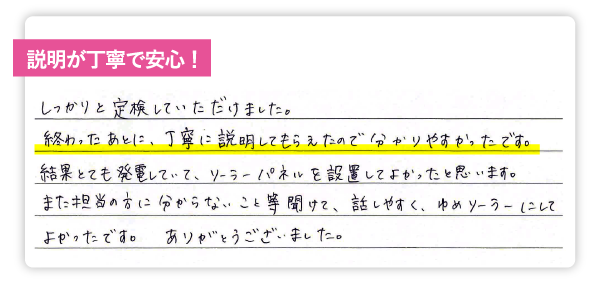 説明が丁寧で安心！
しっかりと定検していただけました。
終わったあとに、丁寧に説明してもらえたので分かりやすかったです。
結果とても発電していて、ソーラーパネルを設置してよかったと思います。
また担当の方に分からないこと等聞けて、話しやすく、ゆめソーラーにして
よかったです。 ありがとうございました。